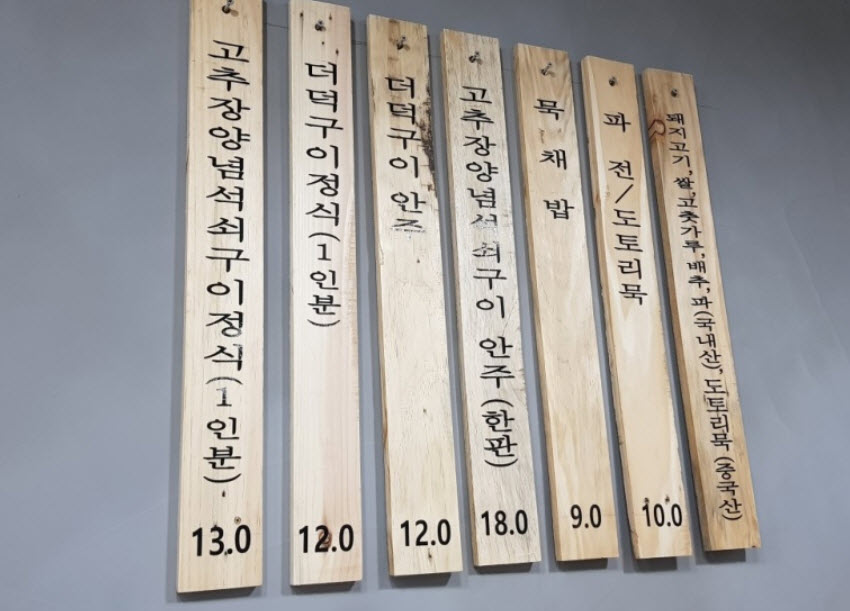 고추장양념석쇠구이정식(1인분)
13.0
더덕구이정식(1인분)
12.0
더덕구이 안주
12.0
고추장양념석쇠구이 안주(한판)
18.0
묵채밥
9.0
파전/도토리묵
10.0
돼지고기,쌀,고춧가루,배추,파(국내산),도토리묵(중국산)